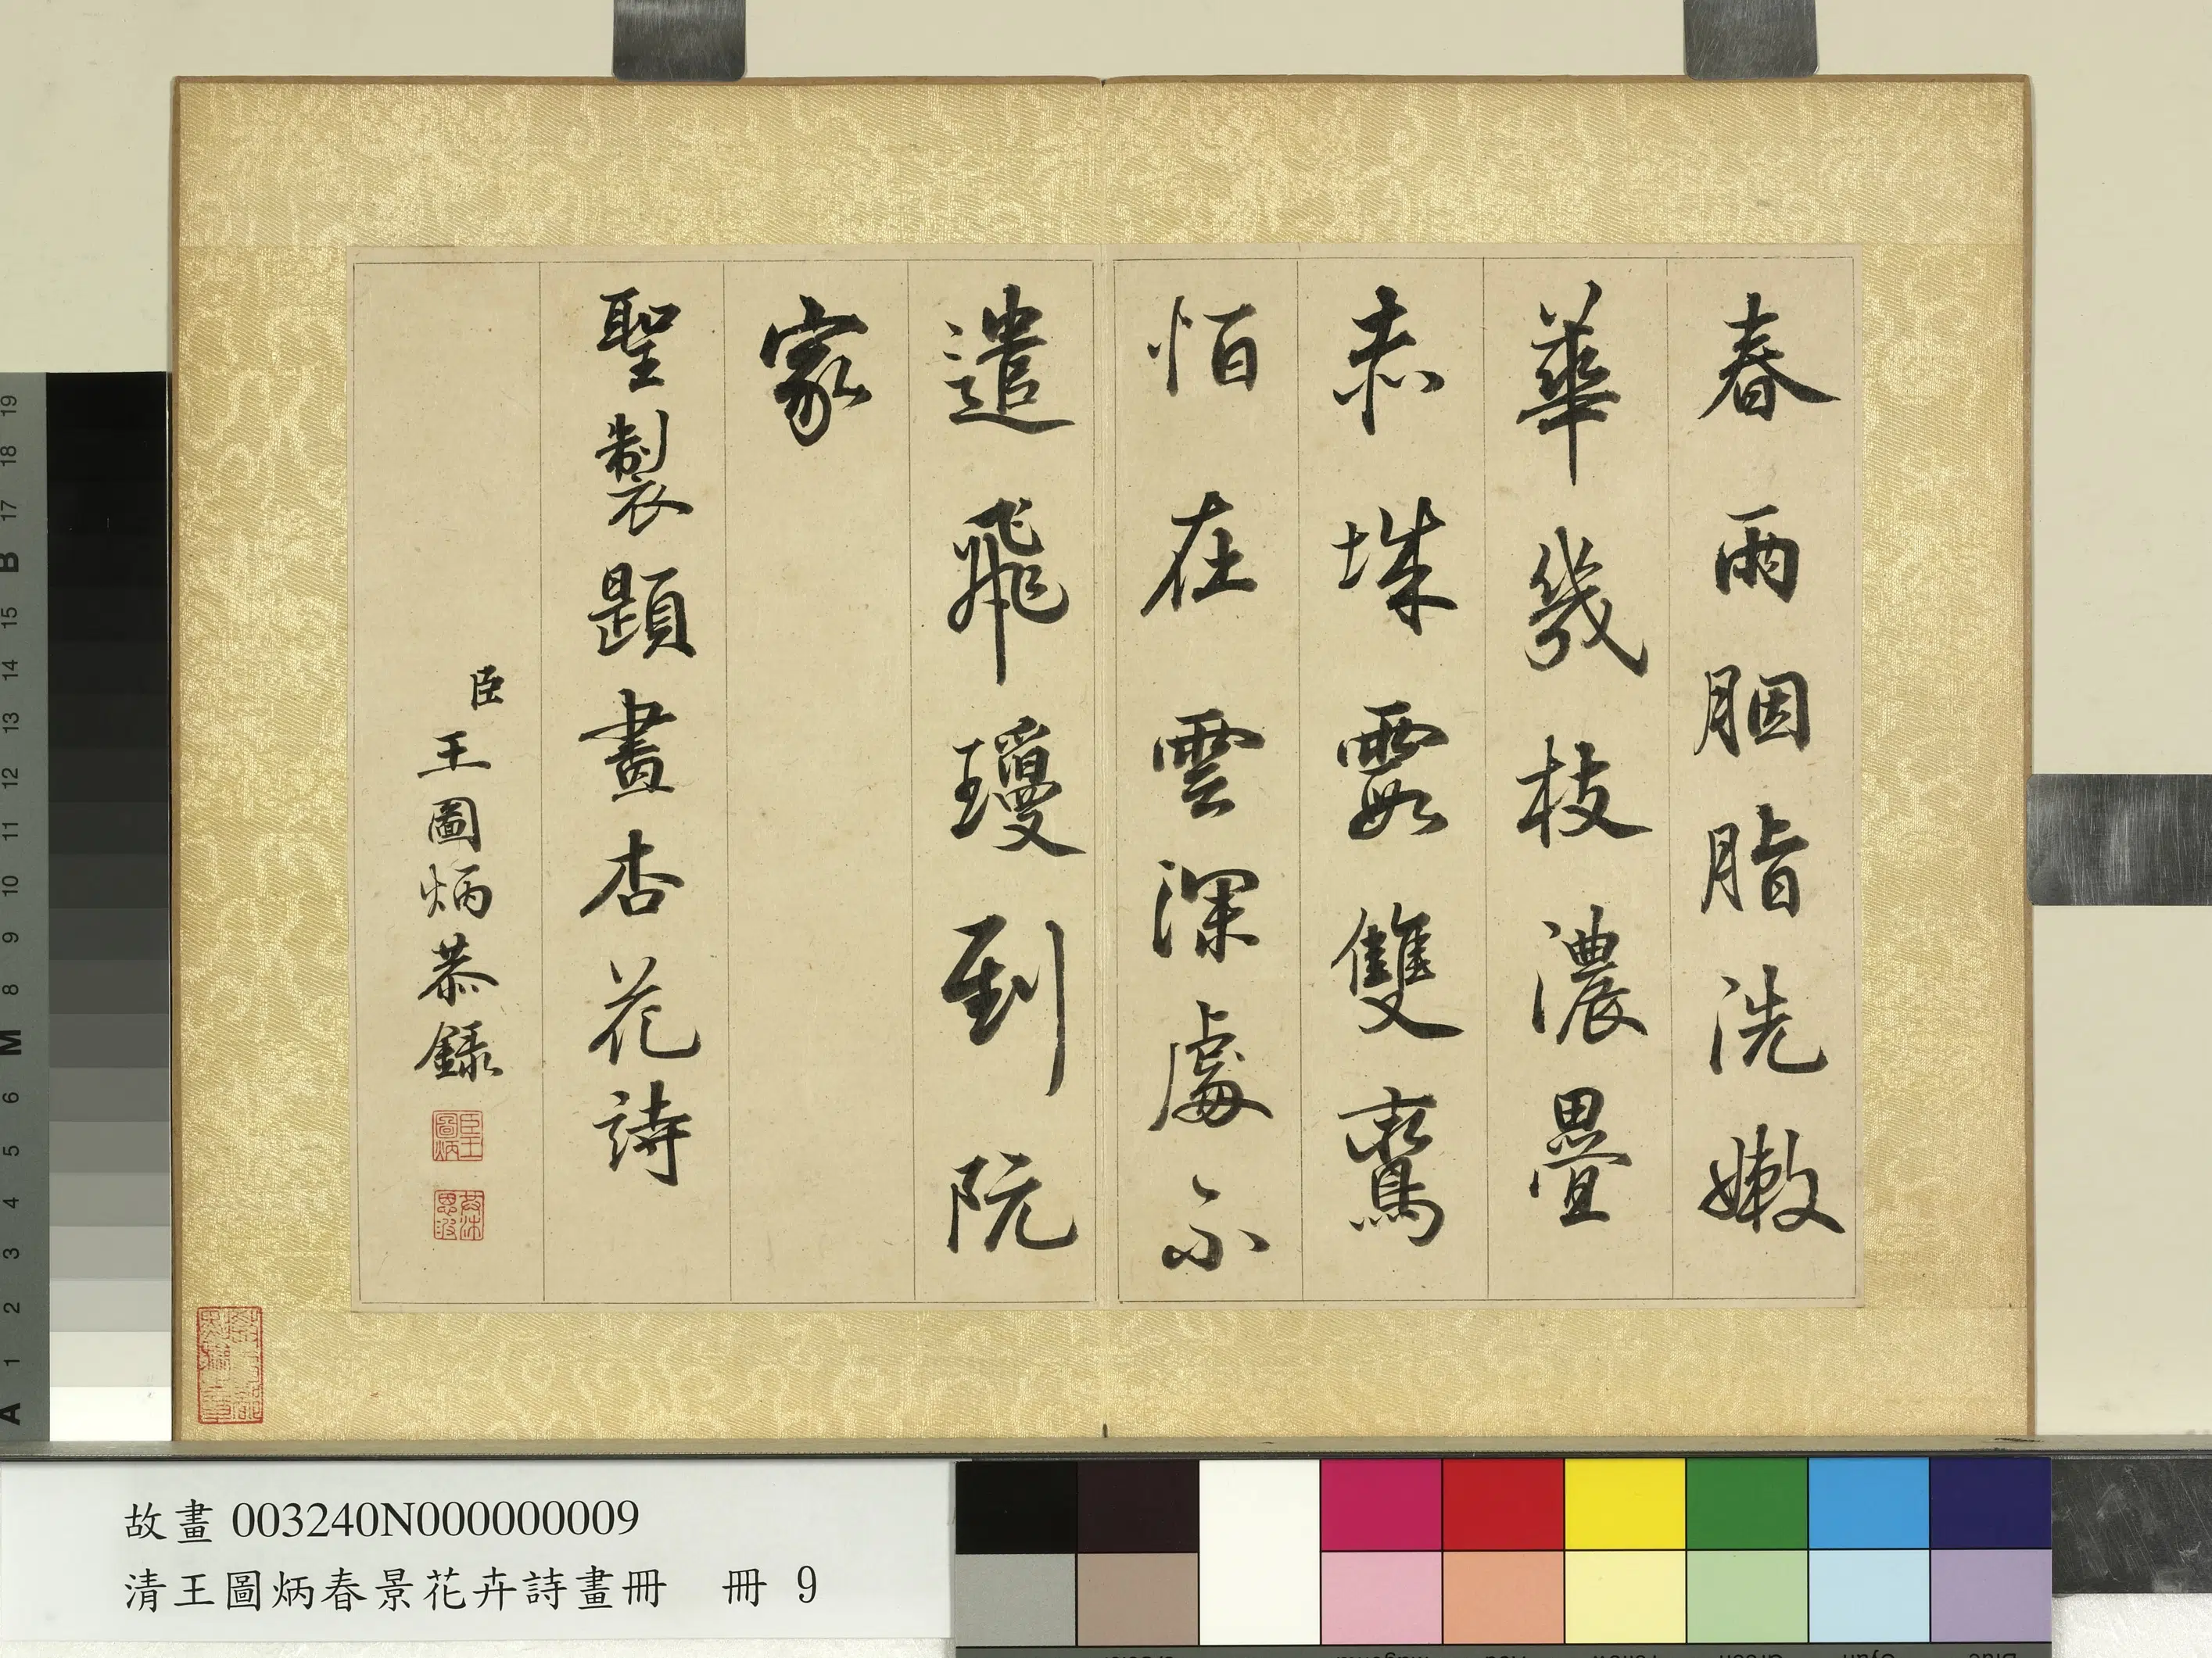 春雨胭脂洗嫩
華幾枝濃疊
赤城霞雙鸞
怕在雲深處不
遣飛瓊到阮
家
聖製題畫杏花詩
臣王圖炳恭錄
臣王圖炳
故畫 003240N000000009
清王圖炳春景花卉詩畫冊 冊 9
19
18
17
B
15
14
13
12
11
10
9
8
M
6
5
4
3
2
1
A